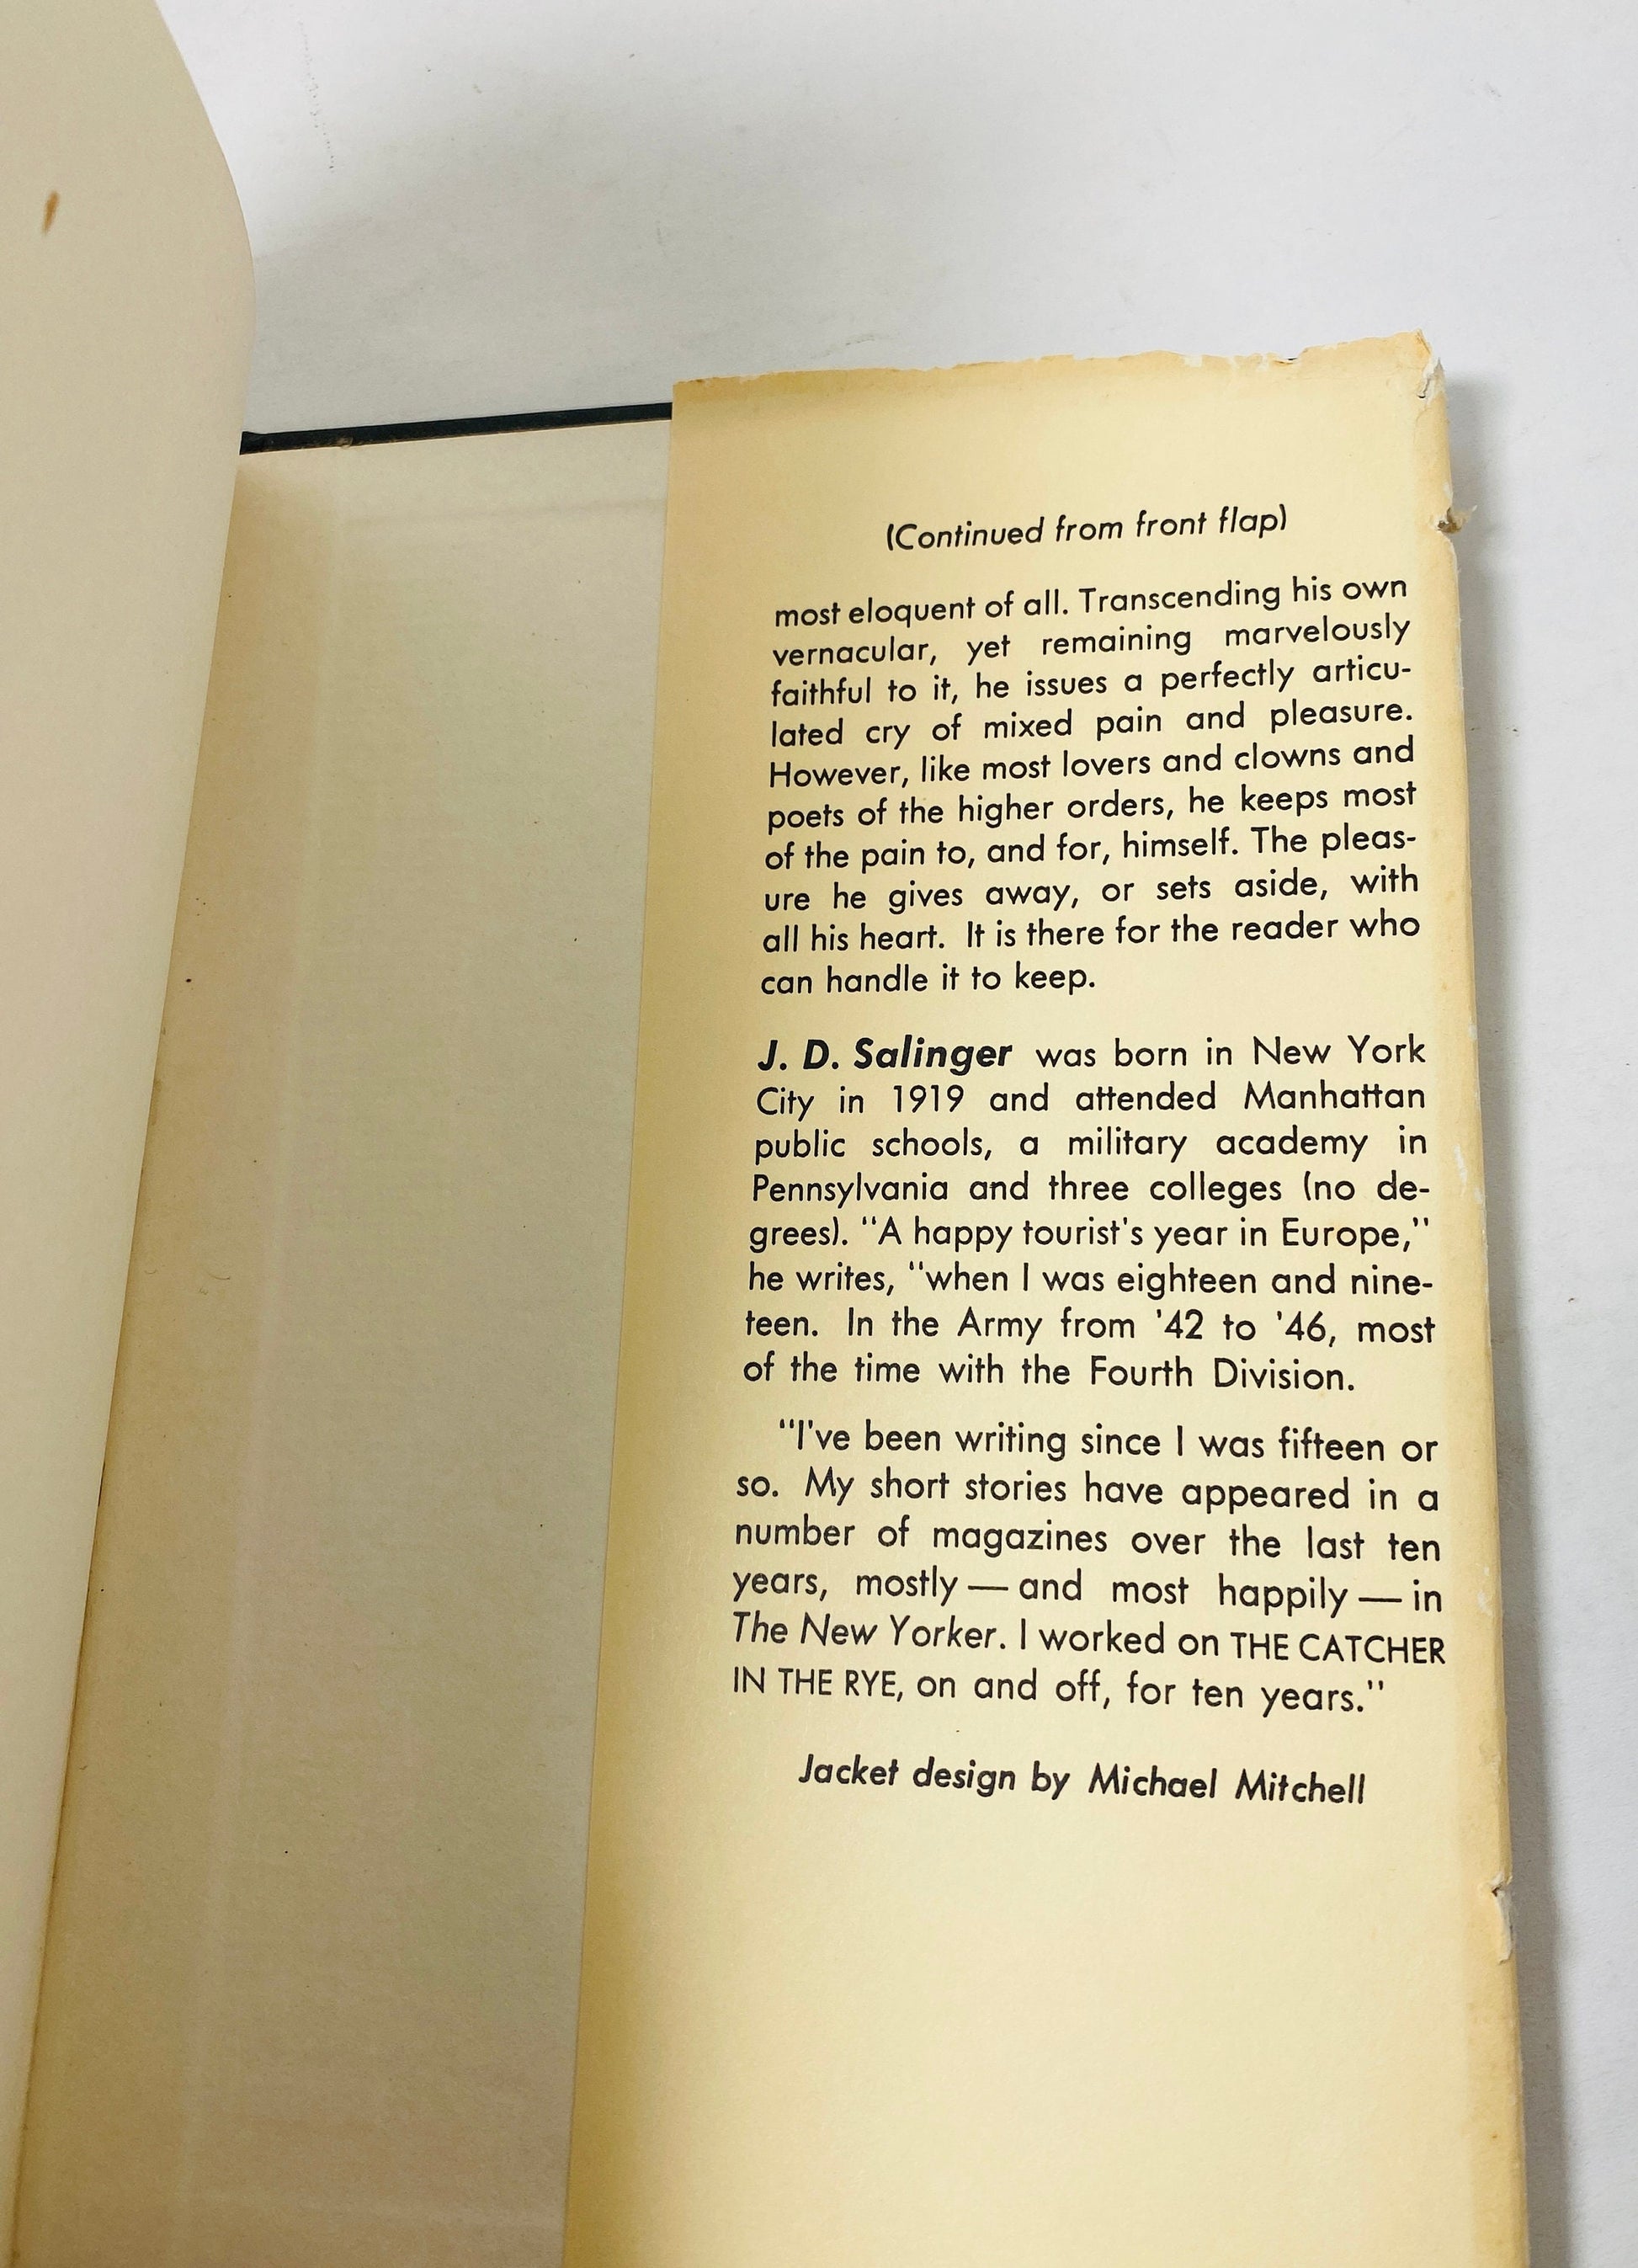 (Continued from front flap)
most eloquent of all. Transcending his own
vernacular, yet remaining marvelously
faithful to it, he issues a perfectly articu-
lated cry of mixed pain and pleasure.
However, like most lovers and clowns and
poets of the higher orders, he keeps most
of the pain to, and for, himself. The pleas-
ure he gives away, or sets aside, with
all his heart. It is there for the reader who
can handle it to keep.
J. D. Salinger was born in New York
City in 1919 and attended Manhattan
public schools, a military academy in
Pennsylvania and three colleges (no de-
grees). "A happy tourist's year in Europe,"
he writes, "when I was eighteen and nine-
teen. In the Army from '42 to '46, most
of the time with the Fourth Division.
"I've been writing since I was fifteen or
so. My short stories have appeared in a
number of magazines over the last ten
years, mostly — and most happily — in
The New Yorker. I worked on THE CATCHER
IN THE RYE, on and off, for ten years."
Jacket design by Michael Mitchell